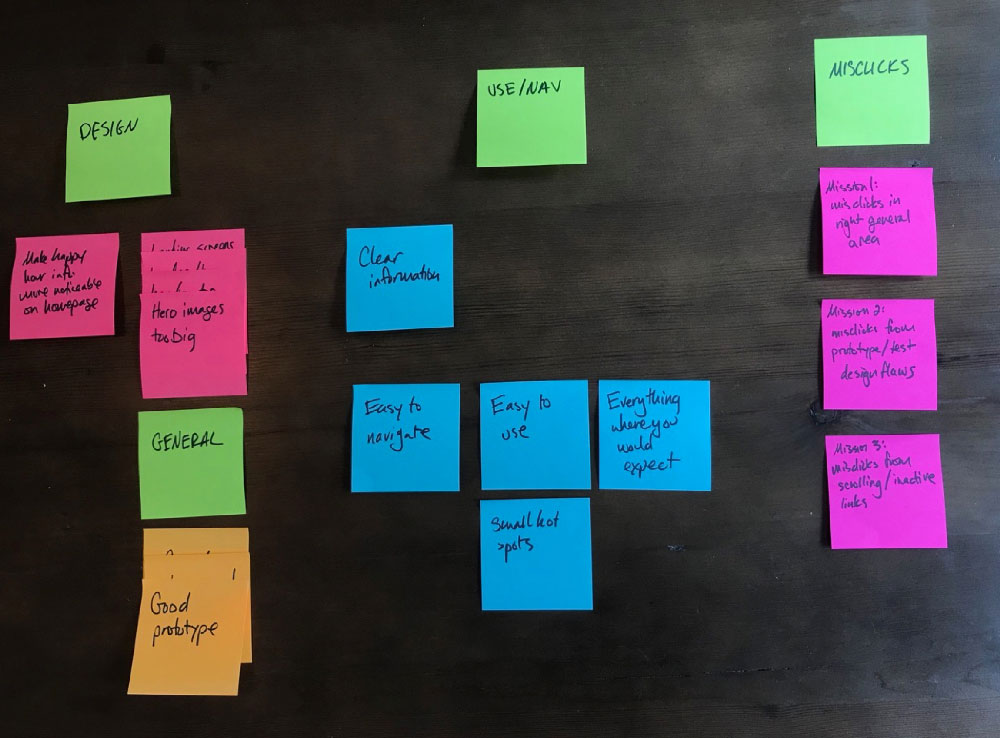 DESIGN
Make happy
hour info
more noticeable
on homepage
Hero images
too big
GENERAL
Good
prototype
USE/NAV
Clear
information
Easy to
navigate
Easy to
use
Everything
where you
would
expect
Small hot
spots
MISCLICKS
Mission 1:
misclicks in
right general
area
Mission 2:
misclicks from
prototype/test
design flaws
Mission 3:
misclicks from
scrolling/inactive
links